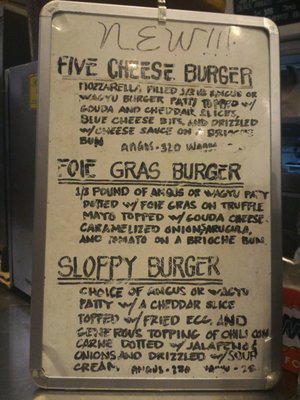 NEW!!!
FIVE CHEESE BURGER
MOZZARELLA FILLED 1/3 LB ANGUS OR
WAGYU BURGER PATTY TOPPED W/
GOUDA AND CHEDDAR SLICES,
BLUE CHEESE BITS, AND DRIZZLED
W/ CHEESE SAUCE ON A BRIOCHE
BUN
ANGUS-320
FOIE GRAS BURGER
1/3 POUND OF ANGUS OR WAGYU PATTY
DOTTED W/ FOIE GRAS ON TRUFFLE
MAYO TOPPED W/ GOUDA CHEESE
CARAMELIZED ONIONS, ARUGULA,
AND TOMATO ON A BRIOCHE BUN
SLOPPY BURGER
CHOICE OF ANGUS OR WAGYU
PATTY W/ A CHEDDAR SLICE
TOPPED W/ FRIED EGG, AND
GENEROUS TOPPING OF CHILI CON
CARNE DOTTED W/ JALAPEÑO &
ONIONS AND DRIZZLED W/ SOUR
CREAM.